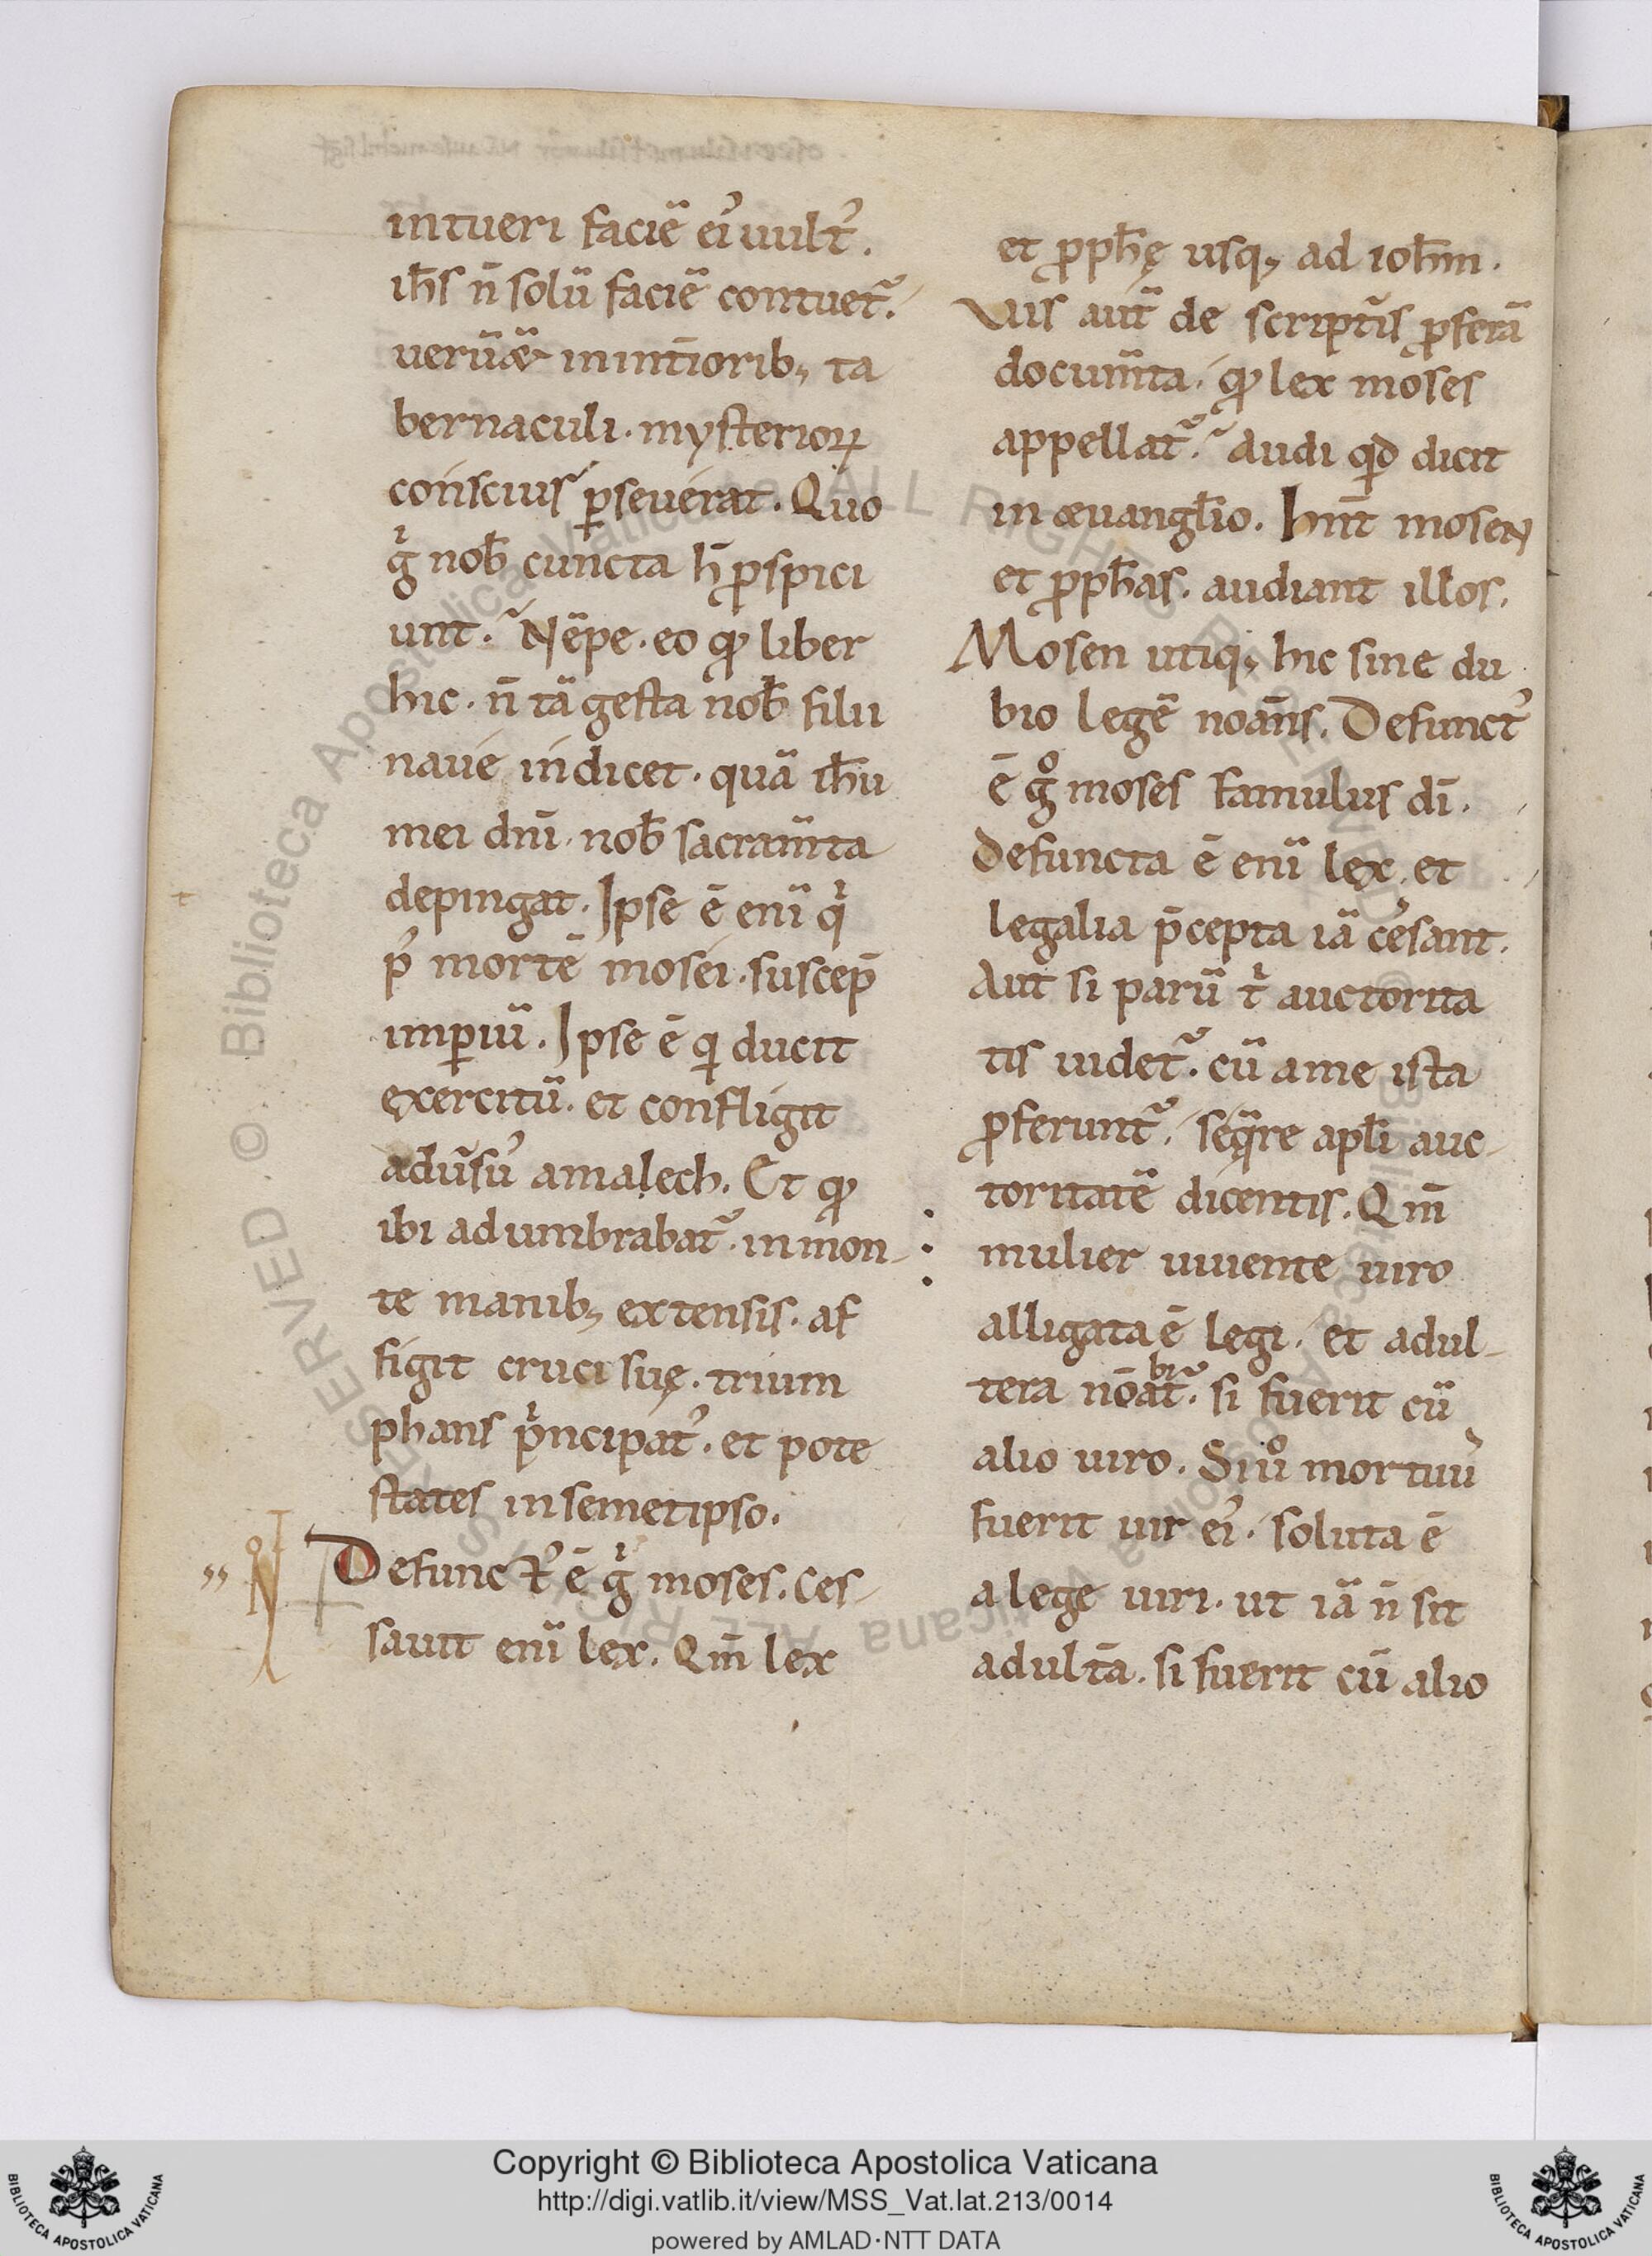 intueri faciē ei᾽ uult᾽.
ih̄s n̄ solū faciē contuet᷑.
uerū & in int̄iorib; ta
bernaculi. mysterioꝝ
conscius ꝑseuerat. Quo
gͥ nob̄ cuncta h̄ ꝓspici
unt. Nēpe. eo qꝫ liber
hic. n̄ tā gesta nob̄ filii
naue indicet. quā ih̄u
mei dn̄i. nob̄ sacram̄ta
depingat. Ipse ē enī qͥ
p᾽ mortē mosei. suscep̄
imꝑiū. Ipse ē qi ducit
exercitū. et confligit
adūsu᾽ amalech. Et qꝫ
ibi adumbrabat᷑. in mon-
te manib; extensis. af
figit cruci suę. trium
phans pͥncipat᾽. et pote
states in semetipso.
Defunct᾽ ē gͥ moses. Ces-
sauit enī lex. Qm̄ lex
et ꝓph̄ę usq; ad ioh̄m.
Vis aut̄ de scriptīs ꝓferā
docum̄ta. qꝫ lex moses
appellat᷑. Audi qd̄ dicit
in æuangl̄io. Hn̄t mosen
et ꝓph̄as. audiant illos.
Mosen utiq; hic sine du
bio legē noān̄s. Defunct᾽
ē gͦ moses famulus dī.
Defuncta ē enī lex. et
legalia p̄cepta iā cesant.
Aut si parū tͥ auctorita
tis uidet᷑. cū a me ista
ꝓferunt᷑. seqͣre apl̄i auc-
toritatē dicentis. Qm̄
mulier uiuente uiro
alligata ē legi. et adul-
tera nōabit᷑. si fuerit cū
alio uiro. Si uͦ mortuu᾽
fuerit uir ei᾽. soluta ē
a lege uiri. ut iā n̄ sit
adult̄a. si fuerit cū alio
Copyright © Biblioteca Apostolica Vaticana
http://digi.vatlib.it/view/MSS_Vat.lat.213/0014
powered by AMLAD·NTT DATA
BIBLIOTECA APOSTOLICA VATICANA
BIBLIOTECA APOSTOLICA VATICANA